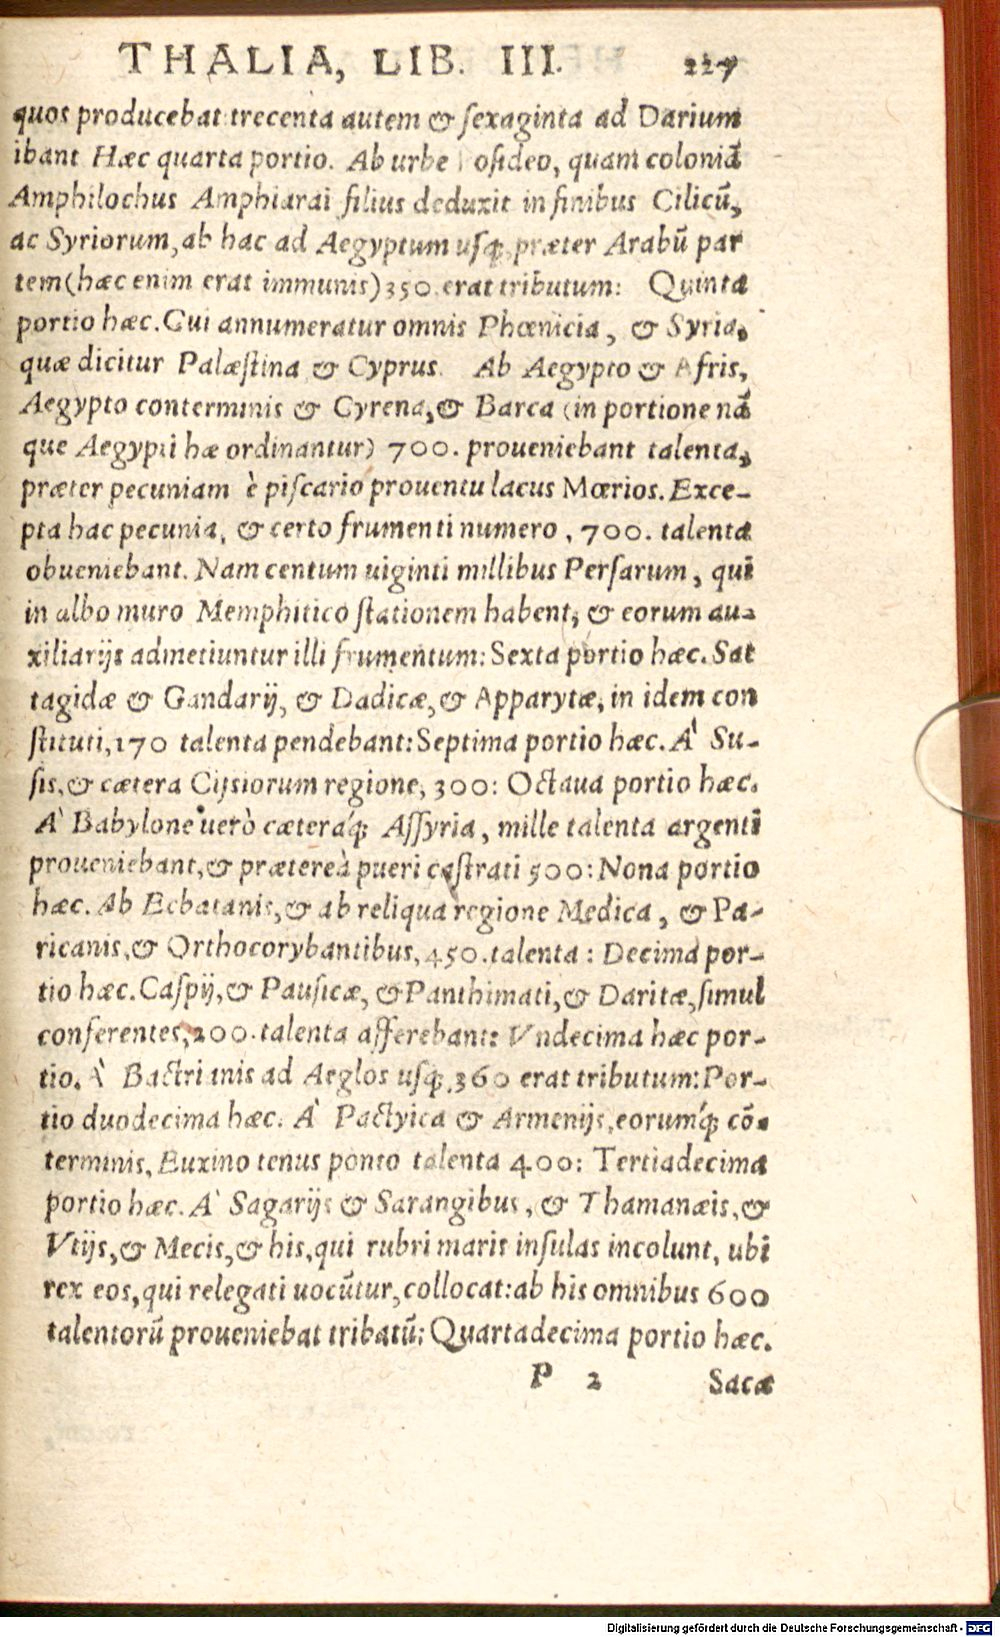 THALIA, LIB. III. 227
quos producebat: trecenta autem & ſexaginta ad Darium
ibant Hæc quarta portio. Ab urbe oſideo, quam coloniã
Amphilochus Amphiarai filius deduxit in finibus Cilicũ,
ac Syriorum, ab hac ad Aegyptum uſq;, præter Arabũ par
tem (hæc enim erat immunis) 350. erat tributum: Quinta
portio hæc. Cui annumeratur omnis Phœnicia, & Syria,
quæ dicitur Palæſtina & Cyprus. Ab Aegypto & Afris,
Aegypto conterminis & Cyrena, & Barca (in portione nã
que Aegypti hæ ordinantur) 700. proueniebant talenta,
præter pecuniam è piſcario prouentu lacus Mœrios. Exce-
pta hac pecunia, & certo frumenti numero, 700. talenta
obueniebant. Nam centum uiginti millibus Perſarum, qui
in albo muro Memphitico ſtationem habent, & eorum au-
xiliarijs admetiuntur illi frumentum: Sexta portio hæc. Sat
tagidæ & Gandarij, & Dadicæ, & Apparytæ, in idem con
ſtituti, 170 talenta pendebant: Septima portio hæc. À Su-
ſis, & cætera Ciſsiorum regione, 300: Octaua portio hæc.
À Babylone uerò cæteráq; Aſſyria, mille talenta argenti
proueniebant, & prætereà pueri caſtrati 500: Nona portio
hæc. Ab Ecbatanis, & ab reliqua regione Medica, & Pa-
ricanis, & Orthocorybantibus, 450. talenta: Decima por-
tio hæc. Caſpij, & Pauſicæ, & Panthimati, & Daritæ, ſimul
conferentes, 200. talenta afferebant: Vndecima hæc por-
tio. À Bactrianis ad Aeglos uſq;, 360 erat tributum: Por-
tio duodecima hæc. À Pactyica & Armenijs, eorumq́; cõ-
terminis, Euxino tenus ponto talenta 400: Tertiadecima
portio hæc. À Sagarijs & Sarangibus, & Thamanæis, &
Vtijs, & Mecis, & his, qui rubri maris inſulas incolunt, ubi
rex eos, qui relegati uocũtur, collocat: ab his omnibus 600
talentorũ proueniebat tribatũ: Quartadecima portio hæc.
P 2 Sacæ
Digitalisierung gefördert durch die Deutsche Forschungsgemeinschaft - DFG